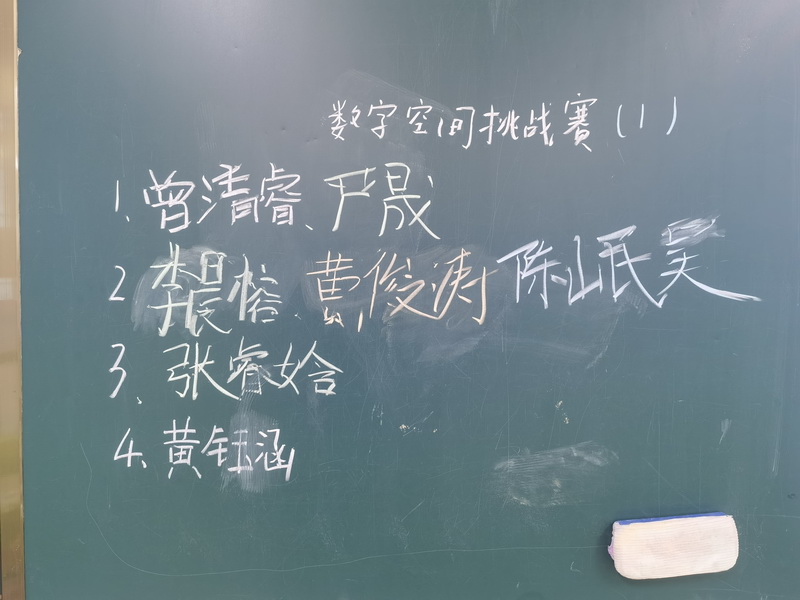 数字空间挑战赛(1)
1、曾清睿、尹晟
2 李晨榕、黄俊涛 陈岷昊
3、张睿姶
4、黄钰涵